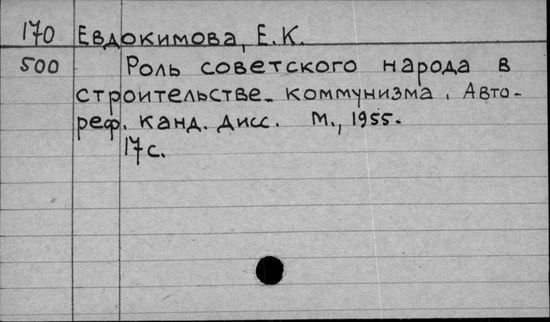 170 Евдокимова, Е.К.
500 Роль советского народа в
строительстве коммунизма. Авто-
реф. канд. дисс. М., 1955.
17с.